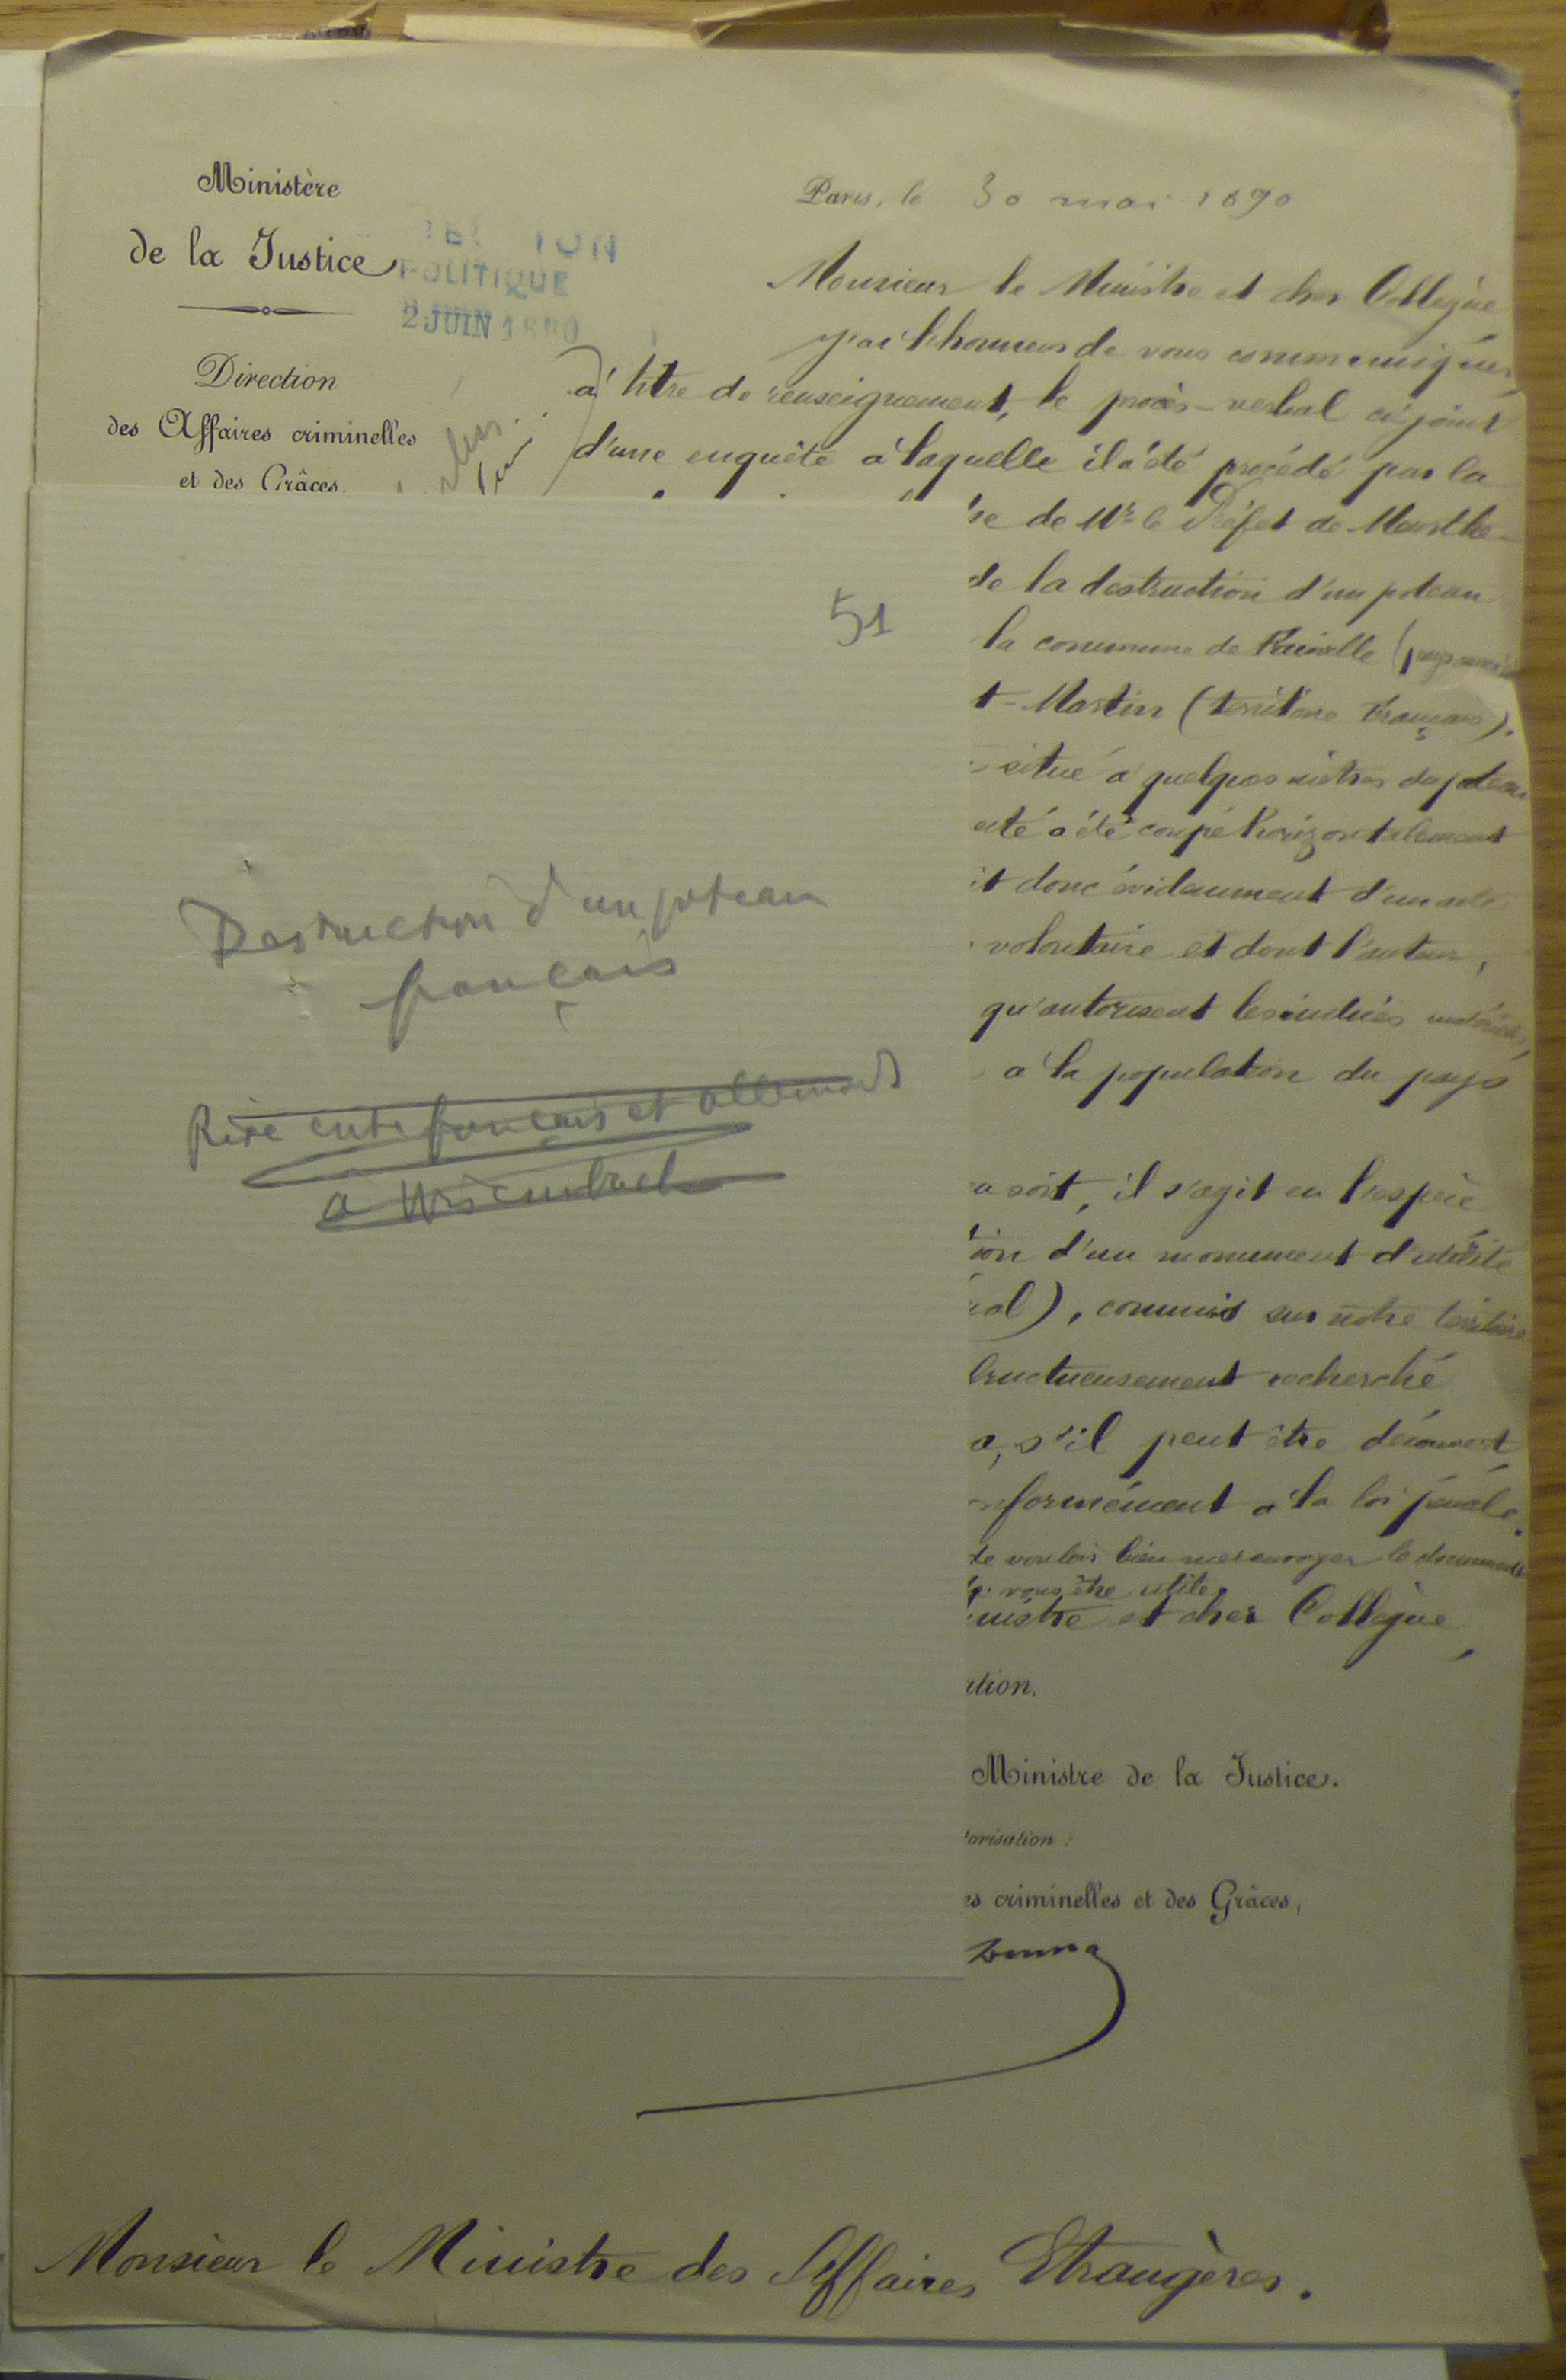 Ministère
de la Justice
Direction
des Affaires criminelles
et des Grâces.
POLITIQUE
2 JUIN 1890
Paris, le 30 mai 1890
Monsieur le Ministre et cher Collègue
j'ai l'honneur de vous communiquer,
à titre de renseignement, le procès-verbal ci-joint
d'une enquête à laquelle il a été procédé par la
de Mr le Préfet de Meurthe-
de la destruction d'un poteau
la commune de
t-Martin (territoire français).
situé à quelques mètres du poteau
a été coupé horizontalement
it donc évidemment d'un acte
volontaire et dont l'auteur,
qu'autorisent les indices matériels,
à la population du pays
soit, il s'agit en l'espèce
ion d'un monument d'utilité
), commis sur notre territoire
fructueusement recherché
a, s'il peut être découvert,
nformément à la loi pénale.
de vouloir bien me renvoyer le document
vous être utile.
nistre et cher Collègue,
ation.
Ministre de la Justice.
torisation :
es criminelles et des Grâces,
51
Destruction d'un poteau
français
Rixe entre français et allemands
à Wisembach
Monsieur le Ministre des Affaires Etrangères.